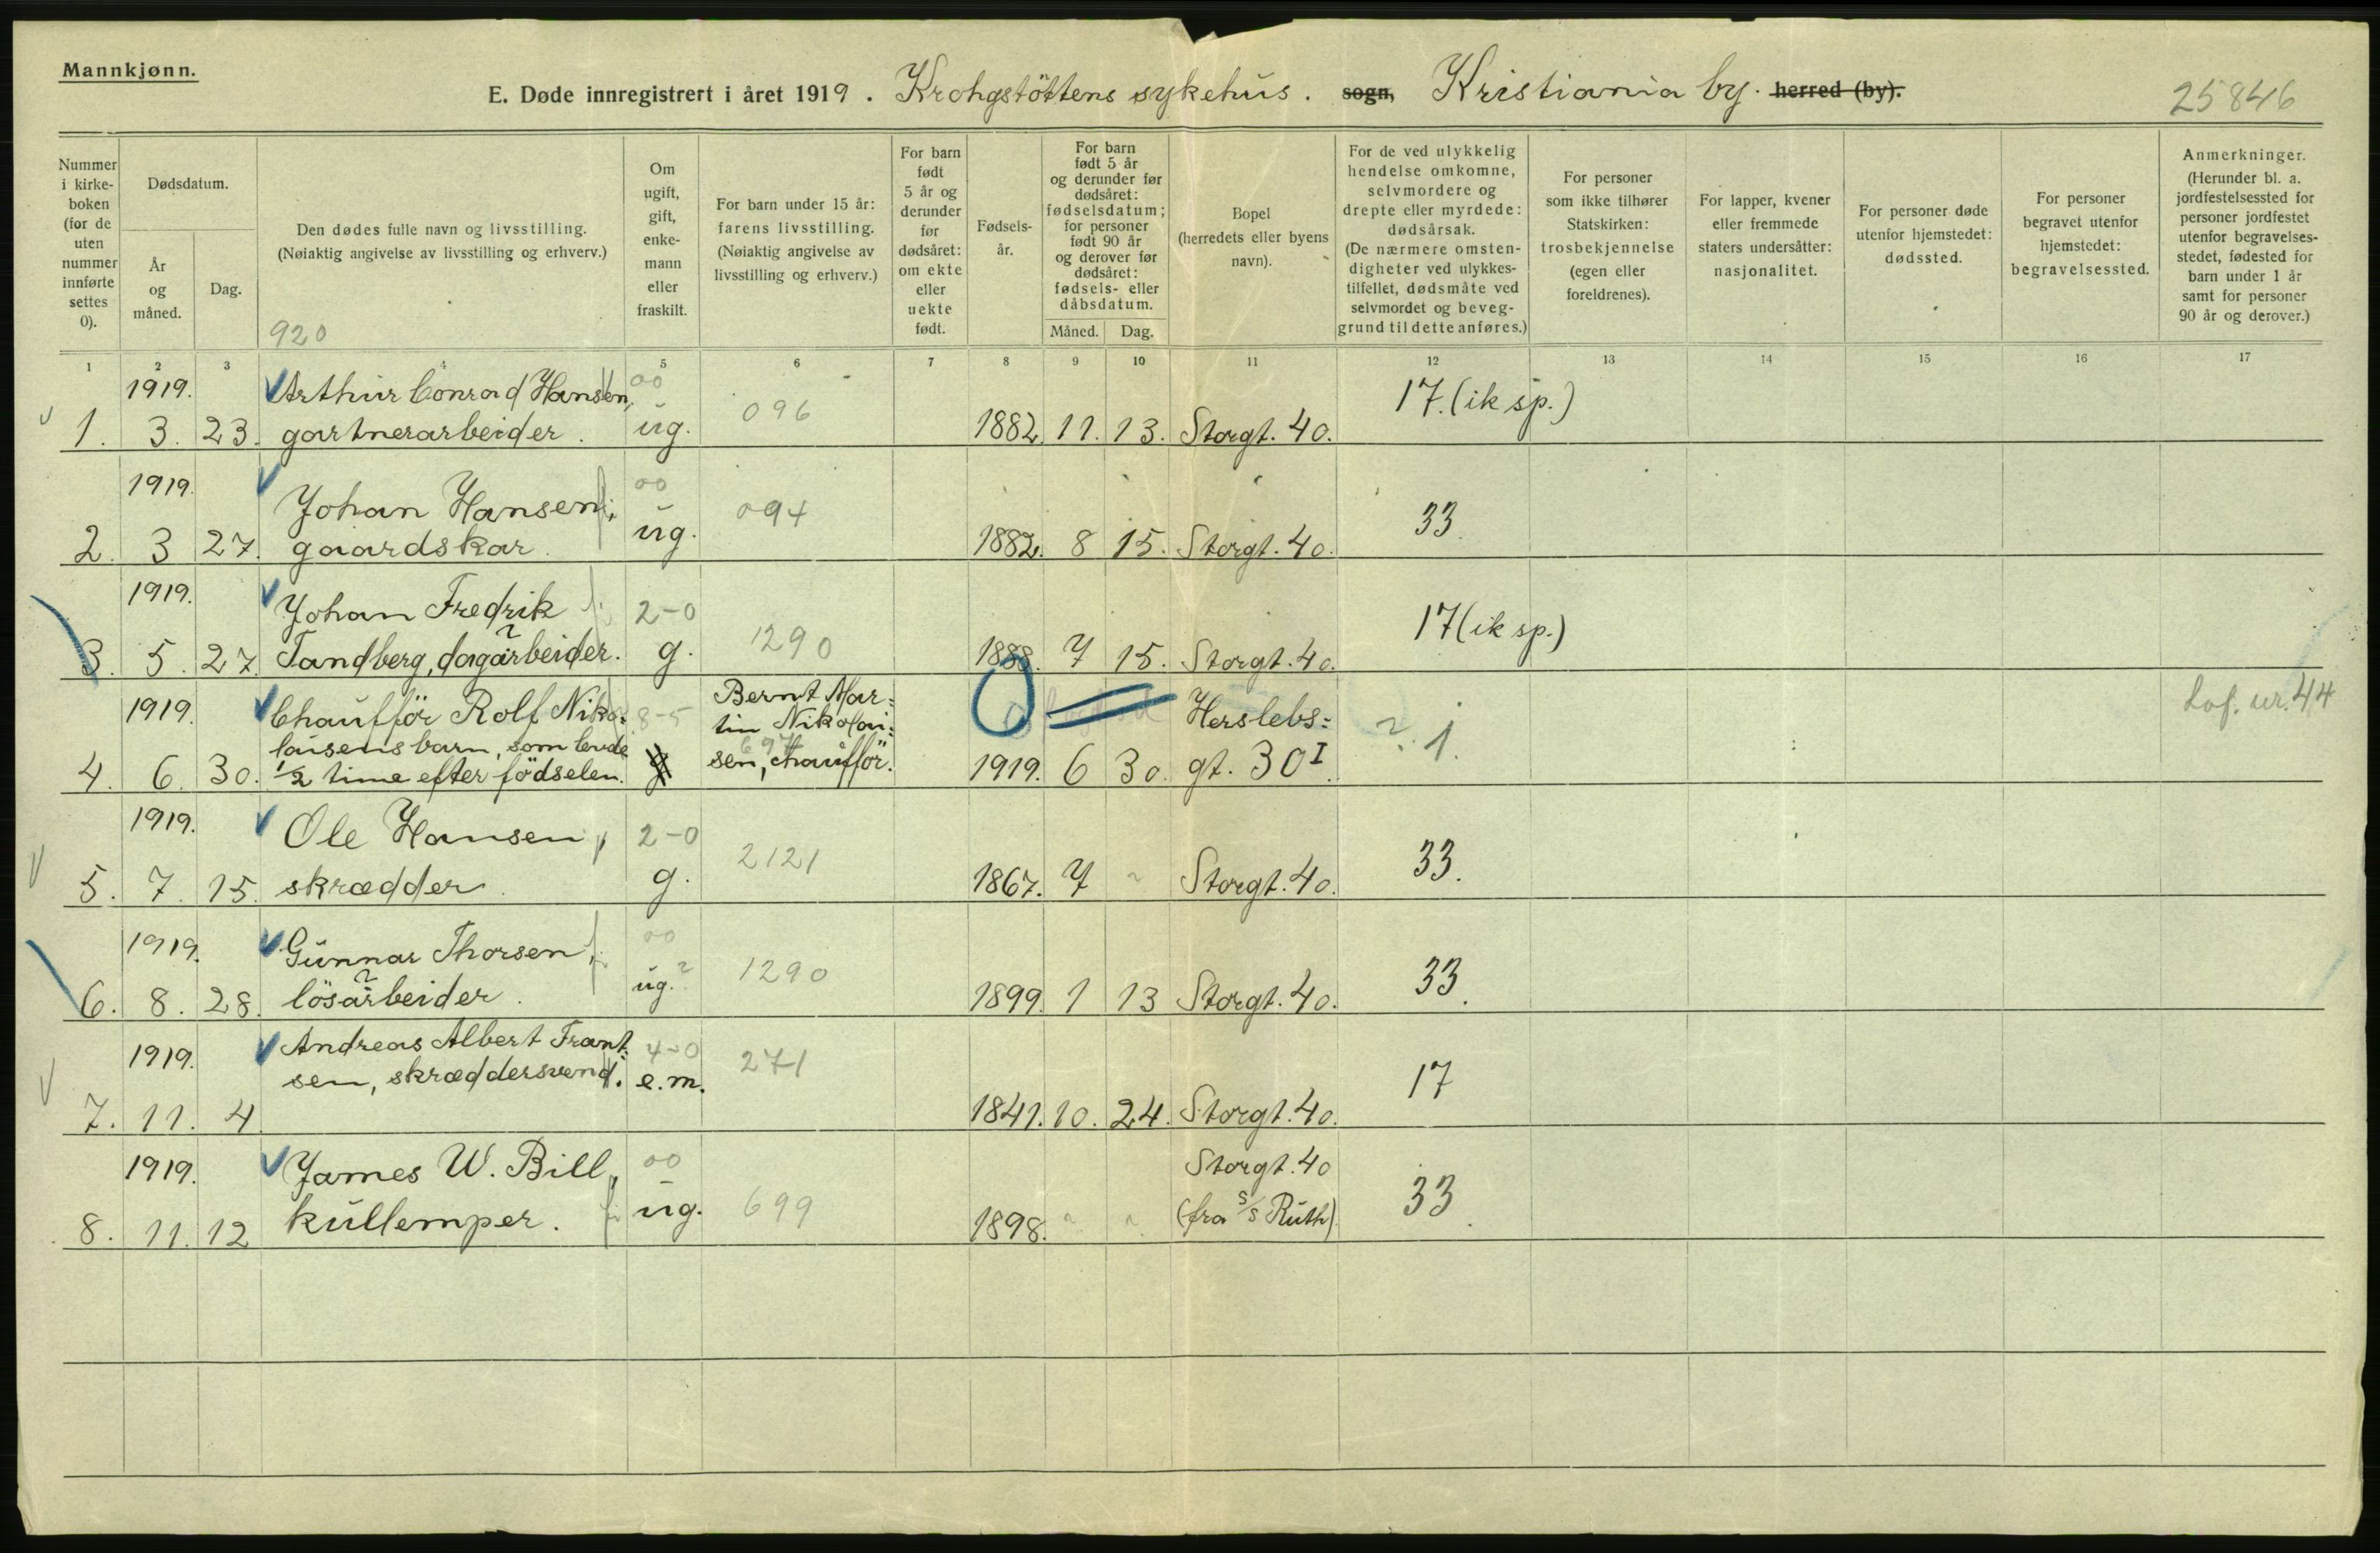 Mannkjønn.
E. Døde innregistrert i året 1919. Krohgstöttens sykehus. sogn, Kristiania by. herred (by).
25846
Nummer i kirke- boken (for de uten nummer innførte settes 0).
Dødsdatum.
År og måned.
Dag.
Den dødes fulle navn og livsstilling.
(Nøiaktig angivelse av livsstilling og erhverv.)
920
Om ugift, gift, enke- mann eller fraskilt.
For barn under 15 år: farens livsstilling. (Nøiaktig angivelse av livsstilling og erhverv.)
For barn født 5 år og derunder før dødsåret: om ekte eller uekte født.
Fødsels- år.
For barn født 5 år og derunder før dødsåret: fødselsdatum; for personer født 90 år og derover før dødsåret: fødsels- eller dåbsdatum.
Måned. Dag.
Bopel (herredets eller byens navn).
For de ved ulykkelig hendelse omkomne, selvmordere og drepte eller myrdede: dødsårsak. (De nærmere omsten- digheter ved ulykkes- tilfellet, dødsmåte ved selvmordet og beveg- grund til dette anføres.)
For personer som ikke tilhører Statskirken: trosbekjennelse (egen eller foreldrenes).
For lapper, kvener eller fremmede staters undersåtter: nasjonalitet.
For personer døde utenfor hjemstedet: dødssted.
For personer begravet utenfor hjemstedet: begravelsessted.
Anmerkninger. (Herunder bl. a. jordfestelsessted for personer jordfestet utenfor begravelses- stedet, fødested for barn under 1 år samt for personer 90 år og derover.)
1 2 3 4 5 6 7 8 9 10 11 12 13 14 15 16 17
1919. Arthur Conrad Hansen, 00 17. (ik sp.)
1. 3. 23. gartnerarbeider. ug. 096 1882. 11. 13. Storgt. 40.
1919. Johan Hansen, 00 094 33.
2. 3 27. gaardskar. ug. 1882. 8 15. Storgt. 40.
1919. Johan Fredrik 2-0 17 (ik sp.)
3. 5. 27. Tandberg, dagarbeider. g. 1290 1888. 7 15. Storgt. 40.
1919. Chaufför Rolf Niko- 8-5 Bernt Mar- Herslebs-
laisens barn, som levde tin Nikolai- 1. 44
4. 6. 30. ½ time efter födselen. g sen, chaufför. 697 1919. 6 30. gt. 30 I.
1919. Ole Hansen, 2-0 2121 33.
5. 7. 15. skrædder. g. 1867. 7 Storgt. 40.
1919. Gunnar Thorsen, 00 33.
6. 8. 28. lösarbeider. ug. ? 1290 1899. 1 13 Storgt. 40.
1919. Andreas Albert Frant- 4-0 271 17
sen, skræddersvend. e.m.
7. 11. 4 1841. 10. 24. Storgt. 40.
1919. James W. Bill, 00 Storgt. 40 33.
8. 11. 12 kullemper. ug. 699 1898. (fra S/S Ruth)